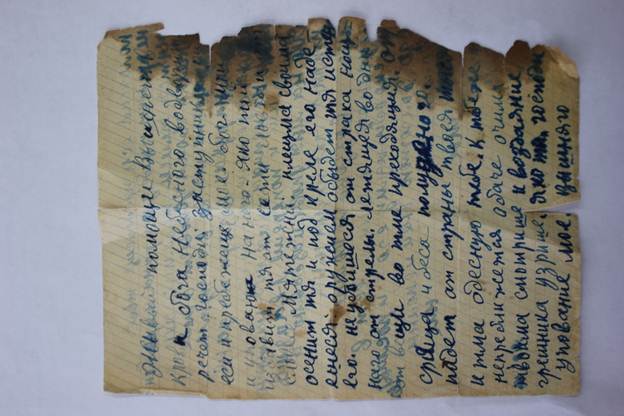 помощи Вышнего
крове бога небесного водворит
речет господи заступник
еси и прибежище мое бог мой
уповаю на него. яко той
избавит тя от сети
мятежна плещма своима
осенит тя и под криле его наде
ешеся оружием обыдет тя исти
его. не убоишся от страха нощ
наго от стрелы летящия во дни
от вещи во тме преходящия. от
сряща и беса полуденного.
падет от страны твоея
и тма одесную тебе. к тебеже
неприближется обаче очима
твоима смотриши и воздаяние
грешника узриши. яко ты господи
упование мое. вышняго